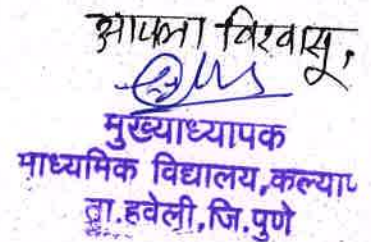 आपला विश्वासू,
मुख्याध्यापक
माध्यमिक विद्यालय,कल्याण
ता.हवेली,जि.पुणे